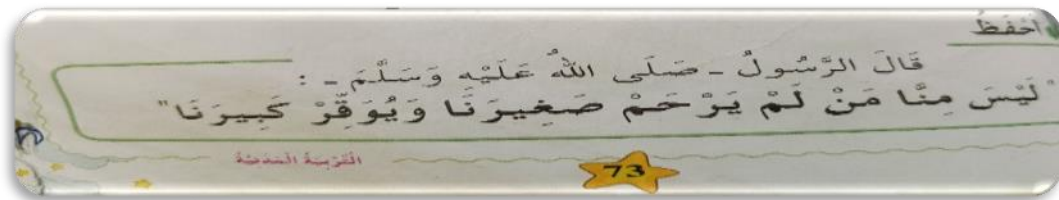 أَحْفَظُ
قَالَ الرَّسُولُ - صَلَى اللّٰهُ عَلَيْهِ وَسَلَّمَ - :
"لَيْسَ مِنَّا مَنْ لَمْ يَرْحَمْ صَغِيرَنَا وَيُوَقِّرْ كَبِيرَنَا"
73
التَّرْبِيَةُ الْمَدَنِيَّةُ